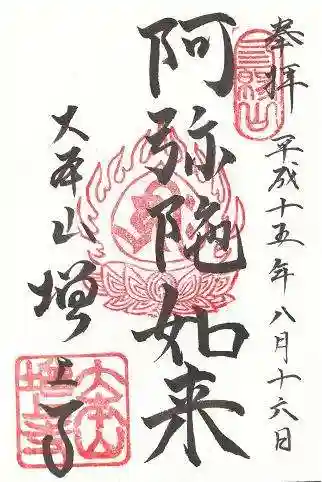 奉拝 平成十五年八月十六日
阿弥陀如来
大本山 増上寺
三縁山
大本山
増上寺